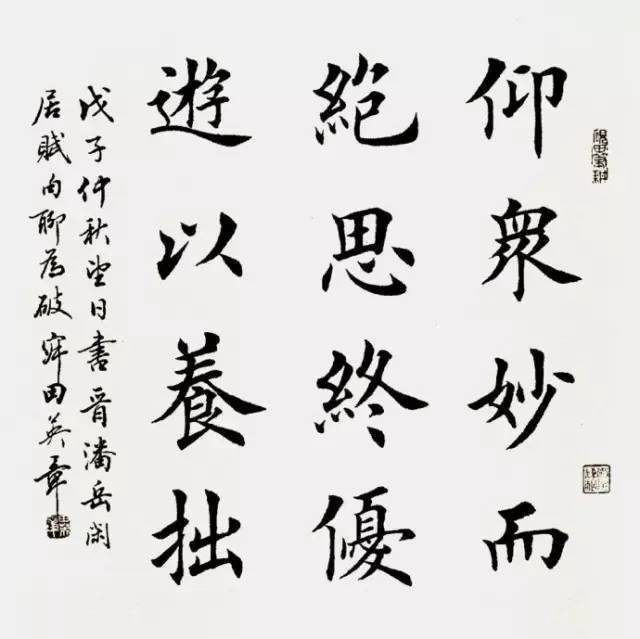 仰衆妙而
絶思終優
遊以養拙
戊子仲秋望日書晉潘岳閑
居賦句聊為破寂田英章